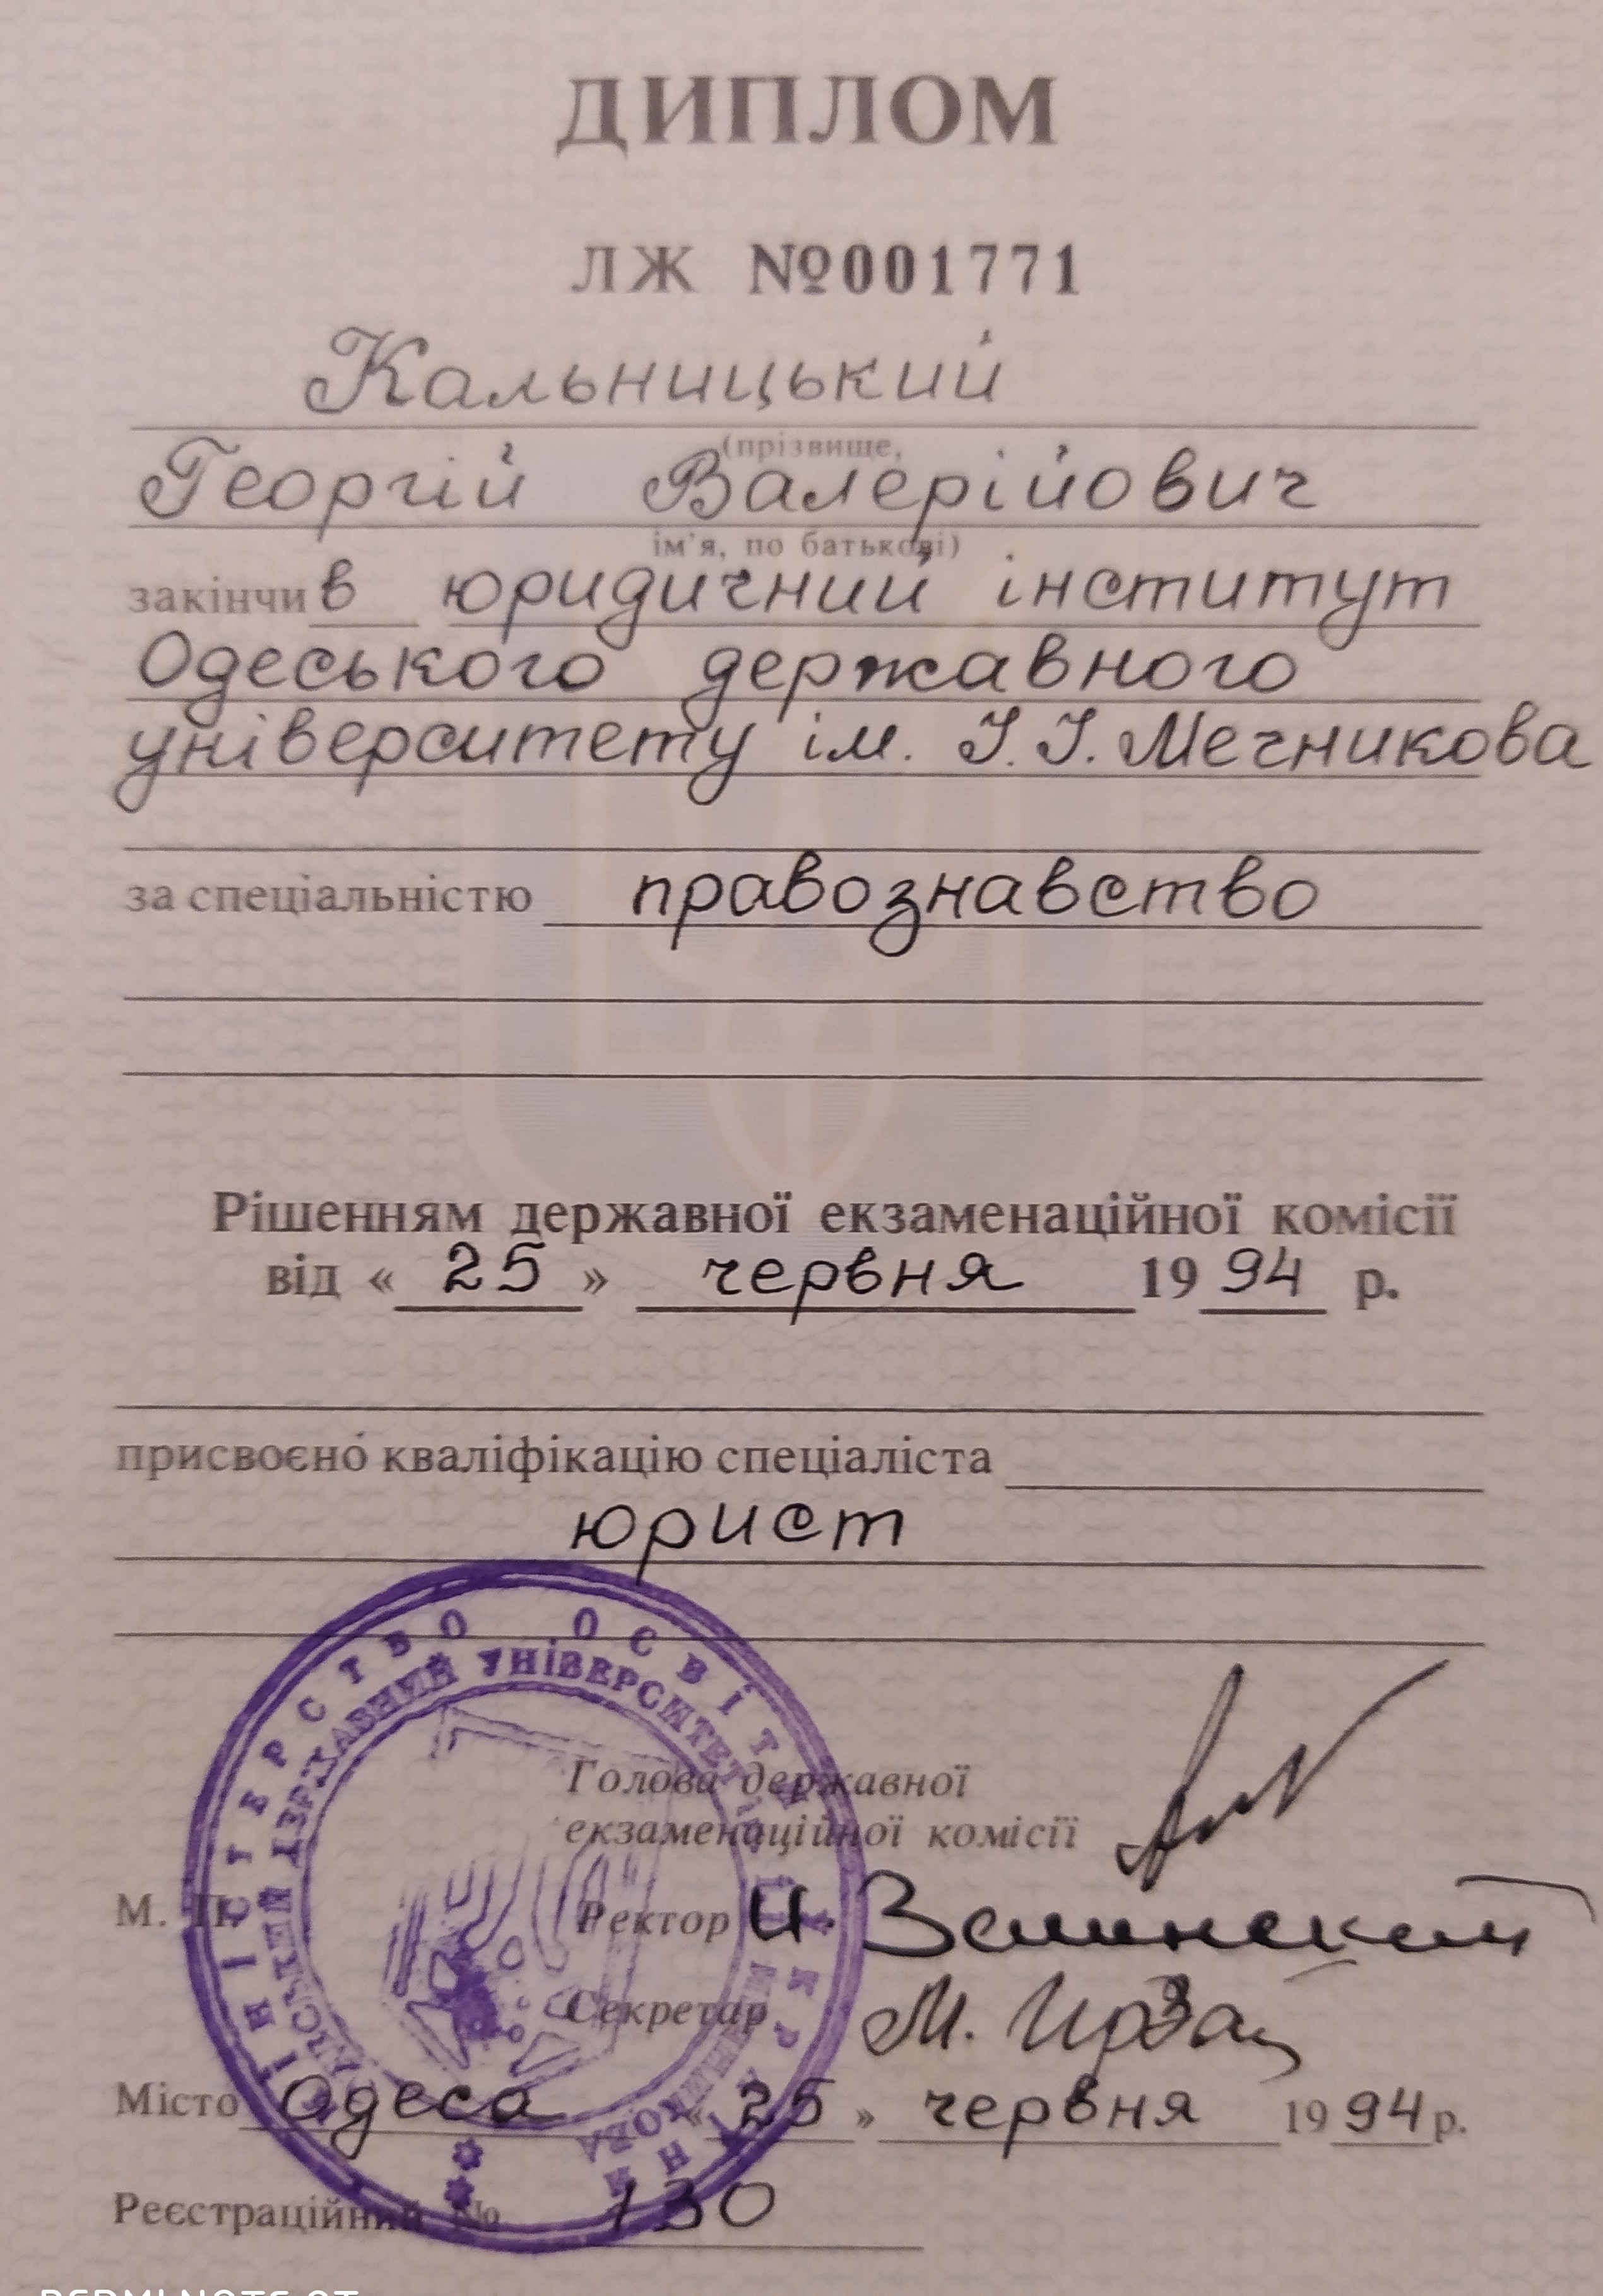 ДИПЛОМ
ЛЖ №001771
Кальницький
(прізвище,
Георгій Валерійович
ім'я, по батькові)
закінчив юридичний інститут
Одеського державного
університету ім. І.І. Мечникова
за спеціальністю правознавство
Рішенням державної екзаменаційної комісії
від « 25 » червня 19 94 р.
присвоєно кваліфікацію спеціаліста
юрист
МІНІСТЕРСТВО ОСВІТИ УКРАЇНИ
ДЕРЖАВНИЙ УНІВЕРСИТЕТ
Голова державної
екзаменаційної комісії
М. П.
Ректор И.
Секретар М.
Місто Одеса « 25 » червня 19 94 р.
Реєстраційний № 130